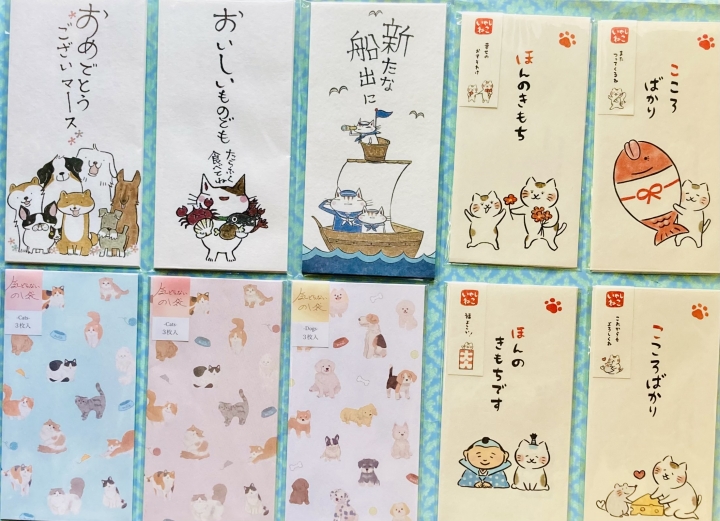 おめでとう
ございマース
おいしいものども
たらふく
食べてね
新たな
船出に
いやし
ねこ
幸せの
おすそわけ
ほんのきもち
いやし
ねこ
こころ
ばかり
-Cats-
3枚入
-Cats-
3枚入
-Dogs-
3枚入
いやし
ねこ
福よこい!
ほんの
きもちです
いやし
ねこ
これからも
よろしくね
こころばかり